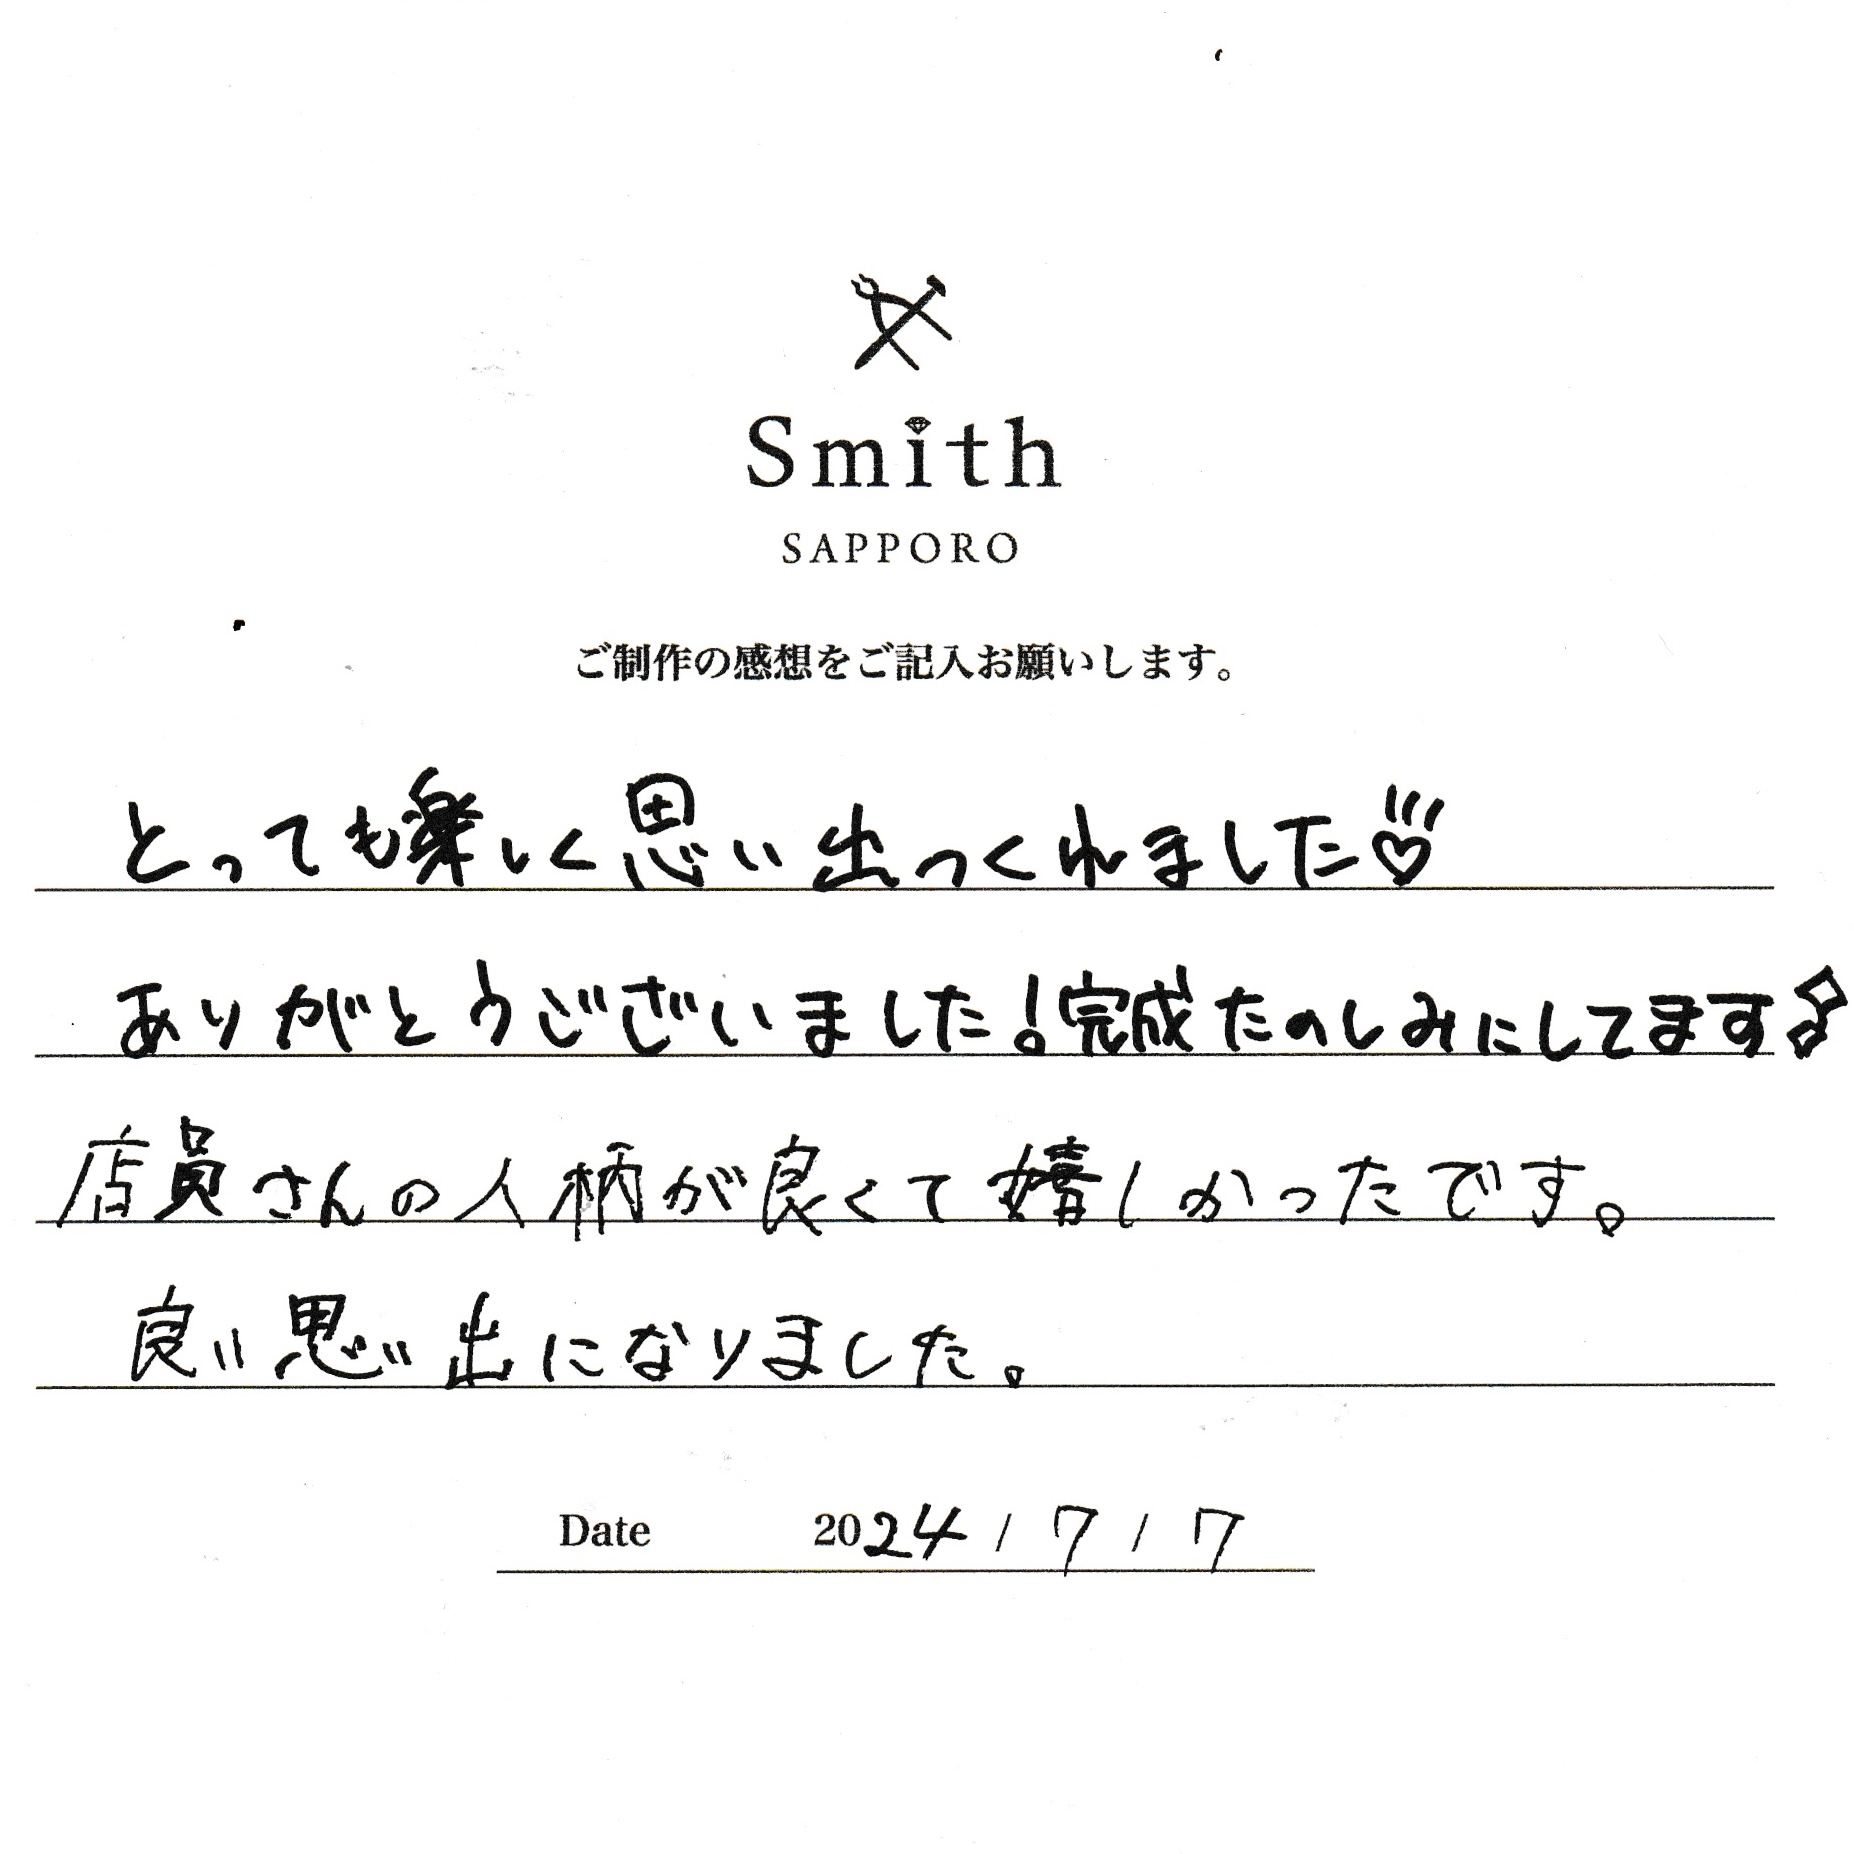 Smith
SAPPORO
ご制作の感想をご記入お願いします。
とっても楽しく思い出つくれました♡
ありがとうございました!完成たのしみにしてます
店員さんの人柄が良くて嬉しかったです。
良い思い出になりました。
Date 2024/7/7